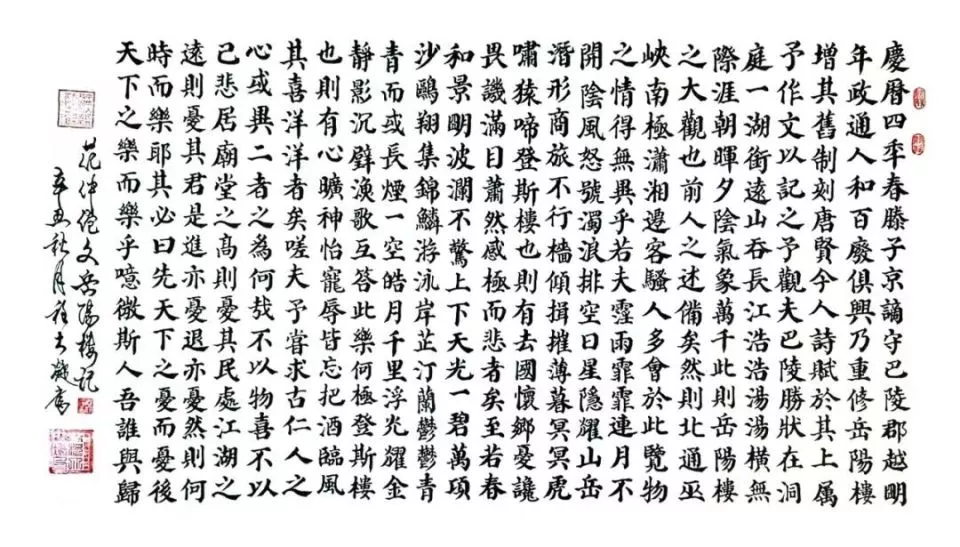 慶曆四年春滕子京謫守巴陵郡越明
年政通人和百廢俱興乃重修岳陽樓
增其舊制刻唐賢今人詩賦於其上属
予作文以記之予觀夫巴陵勝狀在洞
庭一湖銜遠山吞長江浩浩湯湯橫無
際涯朝暉夕陰氣象萬千此則岳陽樓
之大觀也前人之述備矣然則北通巫
峽南極瀟湘遷客騷人多會於此覽物
之情得無異乎若夫霪雨霏霏連月不
開陰風怒號濁浪排空日星隱耀山岳
潛形商旅不行檣傾楫摧薄暮冥冥虎
嘯猿啼登斯樓也則有去國懷鄉憂讒
畏譏滿目蕭然感極而悲者矣至若春
和景明波瀾不驚上下天光一碧萬頃
沙鷗翔集錦鱗游泳岸芷汀蘭鬱鬱青
青而或長煙一空皓月千里浮光耀金
靜影沉璧漁歌互答此樂何極登斯樓
也則有心曠神怡寵辱皆忘把酒臨風
其喜洋洋者矣嗟夫予嘗求古仁人之
心或異二者之為何哉不以物喜不以
己悲居廟堂之高則憂其民處江湖之
遠則憂其君是進亦憂退亦憂然則何
時而樂耶其必曰先天下之憂而憂後
天下之樂而樂乎噫微斯人吾誰與歸
范仲淹文岳陽樓記
辛丑秋月程大書